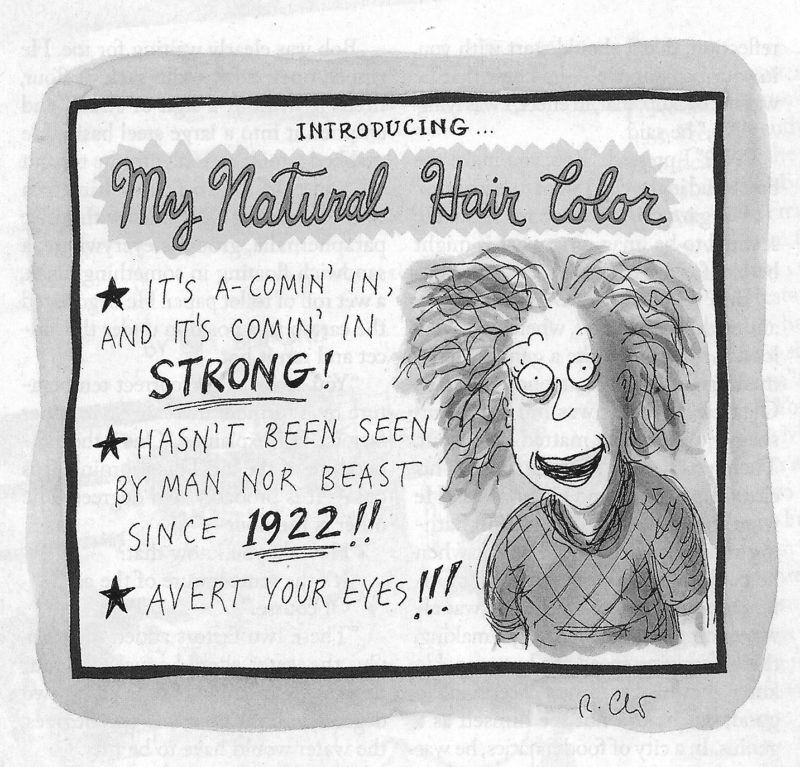 INTRODUCING...
My Natural Hair Color
★ IT'S A-COMIN' IN,
AND IT'S COMIN' IN
STRONG!
★ HASN'T BEEN SEEN
BY MAN NOR BEAST
SINCE 1922!!
★ AVERT YOUR EYES!!!
R. Chr